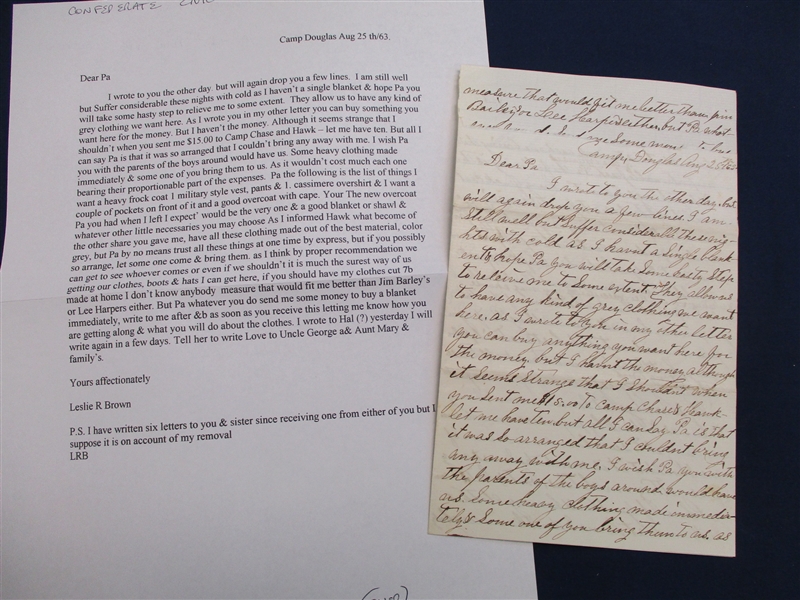 CONFEDERATE CIVIL
Camp Douglas Aug 25 th/63.
Dear Pa
I wrote to you the other day. but will again drop you a few lines. I am still well
but Suffer considerable these nights with cold as I haven't a single blanket & hope Pa you
will take some hasty step to relieve me to some extent. They allow us to have any kind of
grey clothing we want here. As I wrote you in my other letter you can buy something you
want here for the money. But I haven't the money. Although it seems strange that I
shouldn't when you sent me $15.00 to Camp Chase and Hawk – let me have ten. But all I
can say Pa is that it was so arranged that I couldn't bring any away with me. I wish Pa
you with the parents of the boys around would have us. Some heavy clothing made
immediately & some one of you bring them to us. As it wouldn't cost much each one
bearing their proportionable part of the expenses. Pa the following is the list of things I
want a heavy frock coat 1 military style vest, pants & 1. cassimere overshirt & I want a
couple of pockets on front of it and a good overcoat with cape. Your The new overcoat
Pa you had when I left I expect' would be the very one & a good blanket or shawl &
whatever other little necessaries you may choose As I informed Hawk what become of
the other share you gave me, have all these clothing made out of the best material, color
grey, but Pa by no means trust all these things at one time by express, but if you possibly
so arrange, let some one come & bring them. as I think by proper recommendation we
can get to see whoever comes or even if we shouldn't it is much the surest way of us
getting our clothes, boots & hats I can get here, if you should have my clothes cut 7b
made at home I don't know anybody measure that would fit me better than Jim Barley's
or Lee Harpers either. But Pa whatever you do send me some money to buy a blanket
immediately, write to me after &b as soon as you receive this letting me know how you
are getting along & what you will do about the clothes. I wrote to Hal (?) yesterday I will
write again in a few days. Tell her to write Love to Uncle George a& Aunt Mary &
family's.
Yours affectionately
Leslie R Brown
P.S. I have written six letters to you & sister since receiving one from either of you but I
suppose it is on account of my removal
LRB
measure that would fit me better than Jim
Bailey or Lee Harpers either, but Pa what
some mon
Camp Douglas Aug 25
Dear Pa
I wrote to you the other day. but
will again drop you a few lines. I am
still well but Suffer considerall these nig-
hts with cold as I havnt a single blank
ent & hope Pa you will take some hasty step
to relieve me to some extent They allow us
to have any kind of grey clothing we want
here. as I wrote to you in my other letter
you can buy anything you want here for
the money. but I havnt the money although
it seems strange that I shouldnt when
you sent me $15.00 to Camp Chase & Hawk
let me have ten. but all I can say Pa is that
it was so arranged that I couldnt bring
any away with me. I wish Pa you with
the parents of the boys around would have
us. Some heavy clothing made immedia-
tely & Some one of you bring them to us. as